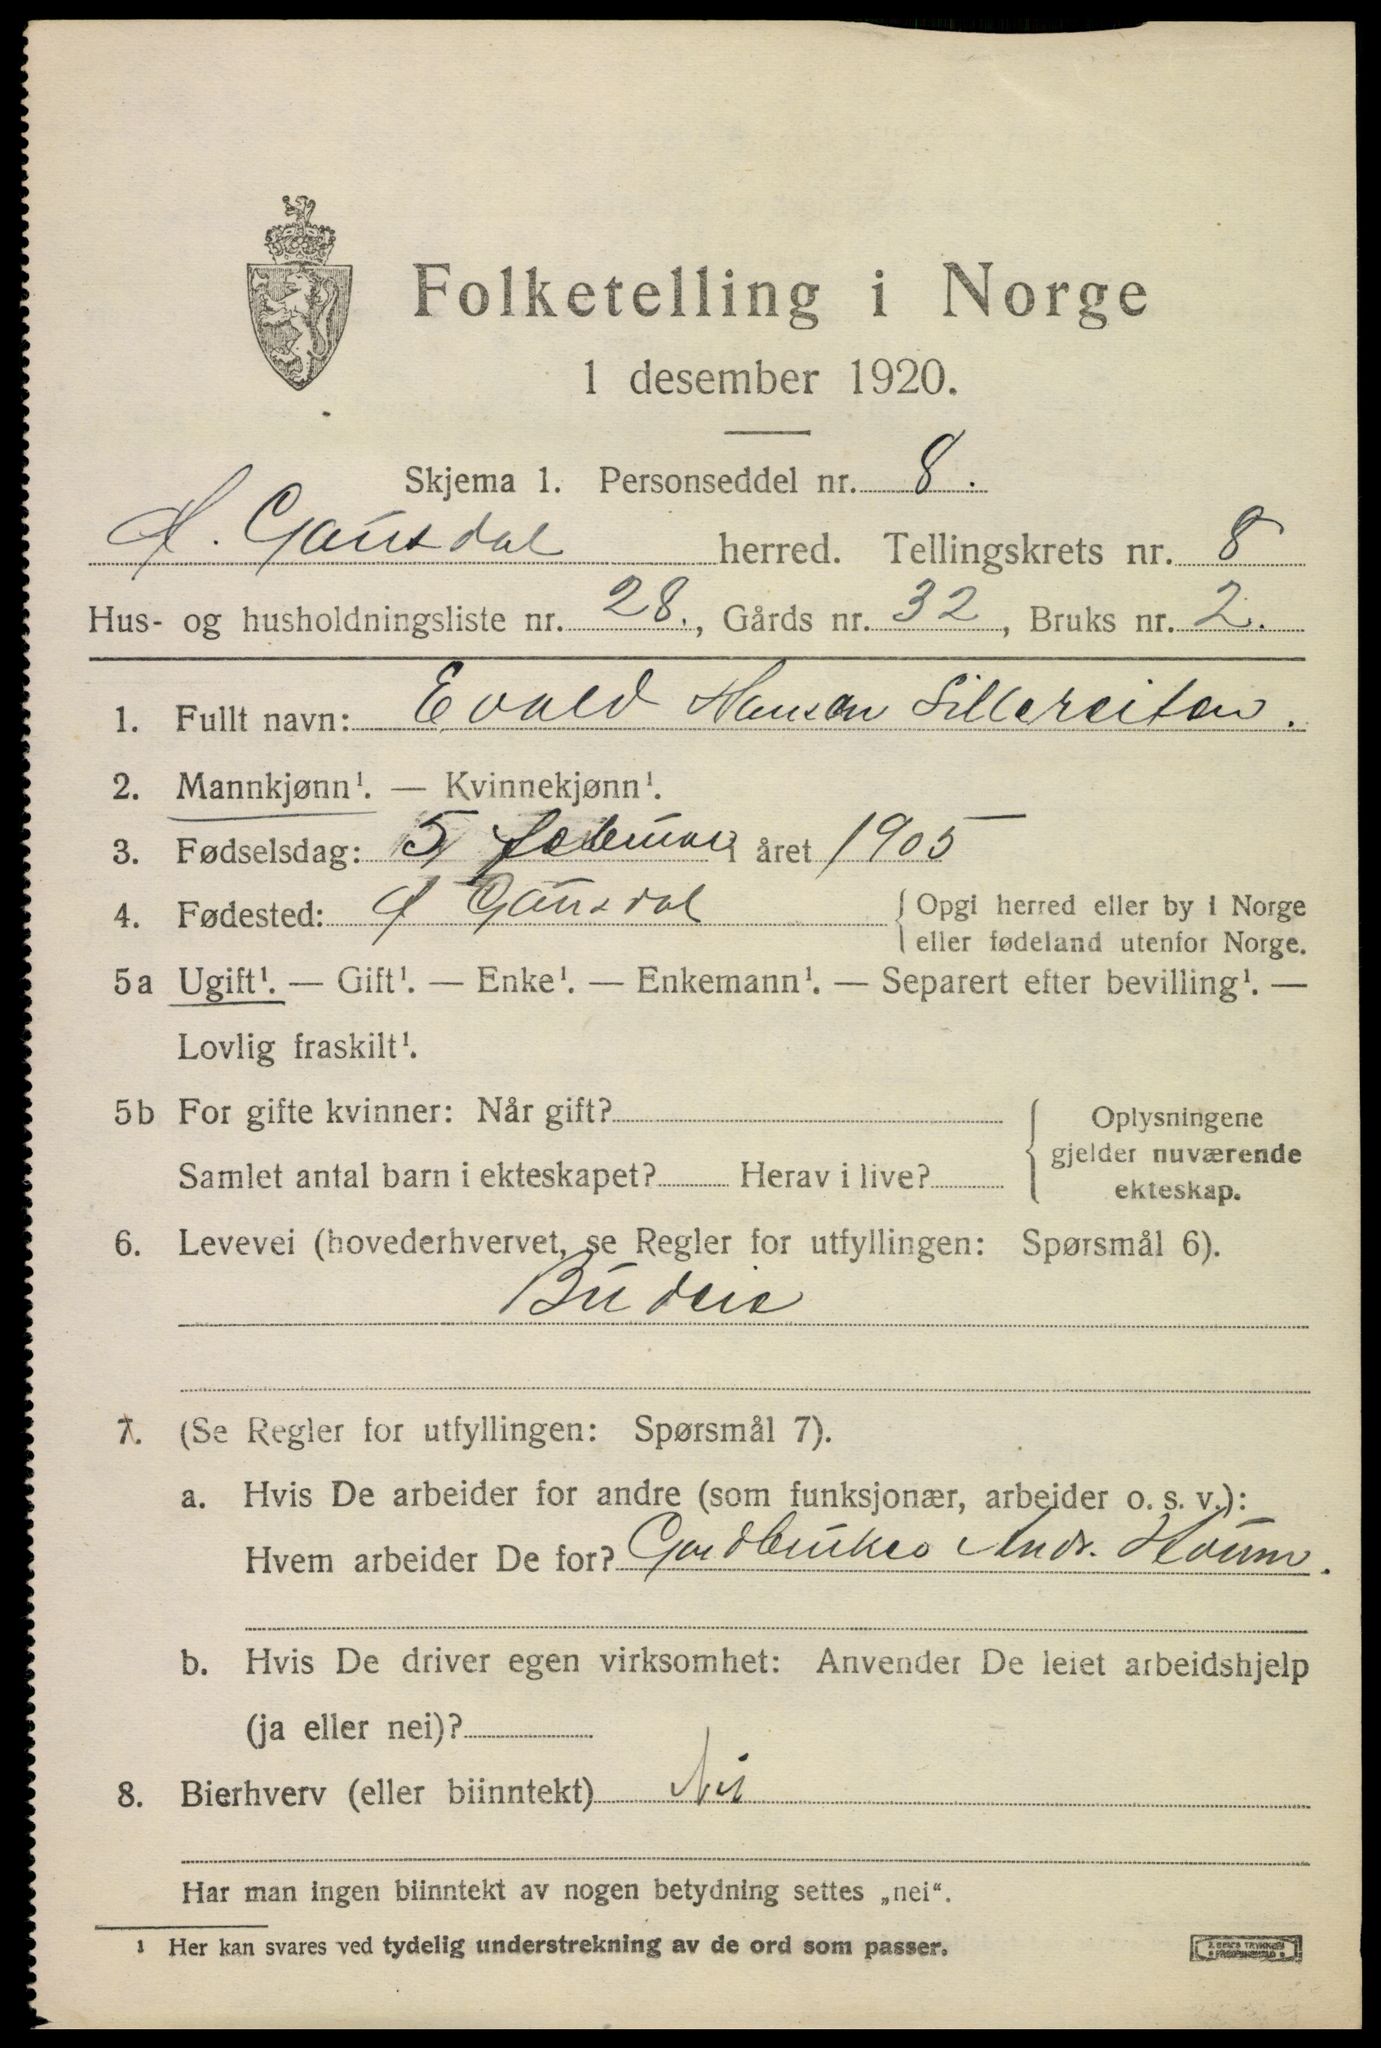 Folketelling i Norge
1 desember 1920.
Skjema 1. Personseddel nr. 8.
Ø. Gausdal herred. Tellingskrets nr. 8
Hus- og husholdningsliste nr. 28., Gårds nr. 32, Bruks nr. 2.
1. Fullt navn: Evald Hansen Sillereiten.
2. Mannkjønn¹. — Kvinnekjønn¹.
3. Fødselsdag: 5 februar i året 1905
4. Fødested: Ø Gausdal { Opgi herred eller by i Norge
eller fødeland utenfor Norge.
5a Ugift¹. — Gift¹. — Enke¹. — Enkemann¹. — Separert efter bevilling¹. —
Lovlig fraskilt¹.
5b For gifte kvinner: Når gift?
Samlet antal barn i ekteskapet? Herav i live?
{ Oplysningene
gjelder nuværende
ekteskap.
6. Levevei (hovederhvervet, se Regler for utfyllingen: Spørsmål 6).
Budeie
7. (Se Regler for utfyllingen: Spørsmål 7).
a. Hvis De arbeider for andre (som funksjonær, arbeider o. s. v.):
Hvem arbeider De for? Gardbruker Andr.
b. Hvis De driver egen virksomhet: Anvender De leiet arbeidshjelp
(ja eller nei)?
8. Bierhverv (eller biinntekt) Nei
Har man ingen biinntekt av nogen betydning settes „nei“.
¹ Her kan svares ved tydelig understrekning av de ord som passer.